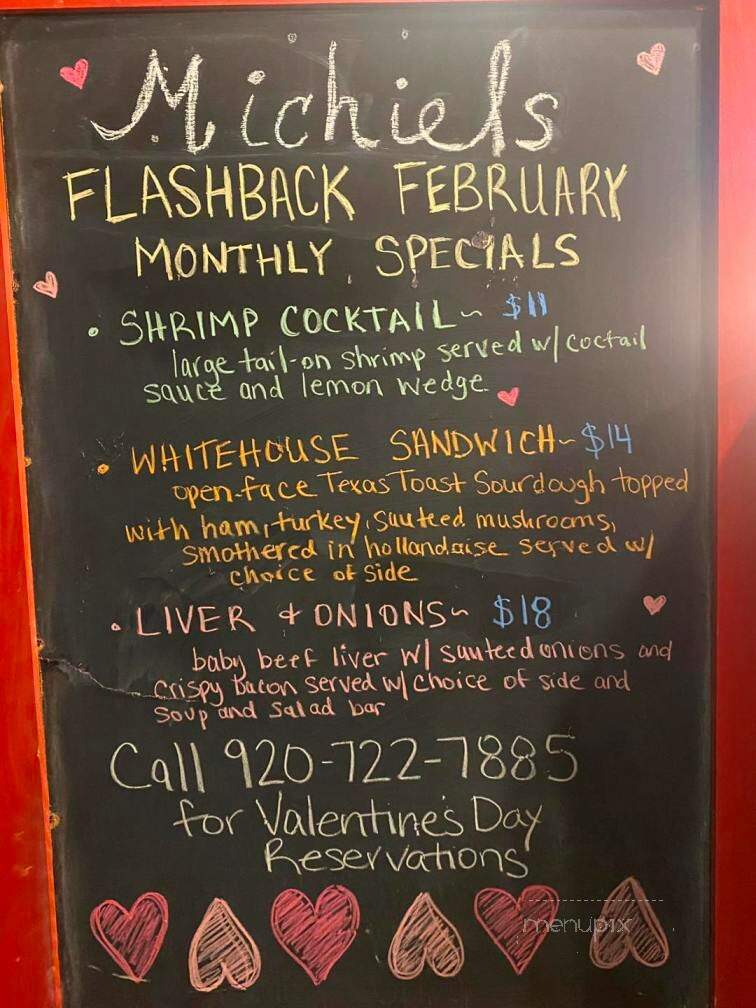 Michiels
FLASHBACK FEBRUARY
MONTHLY SPECIALS
• SHRIMP COCKTAIL~ $11
large tail-on shrimp served w/ coctail
sauce and lemon wedge
• WHITEHOUSE SANDWICH~ $14
open-face Texas Toast Sourdough topped
with ham, turkey, sauteed mushrooms,
smothered in hollandaise served w/
choice of side
• LIVER & ONIONS~ $18
baby beef liver w/ sauteed onions and
crispy bacon served w/ choice of side and
soup and salad bar
Call 920-722-7885
for Valentine's Day
Reservations
menupix